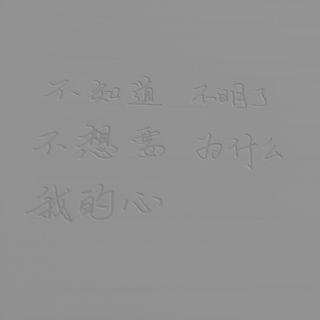 不知道 不明了
不想要 为什么
我的心